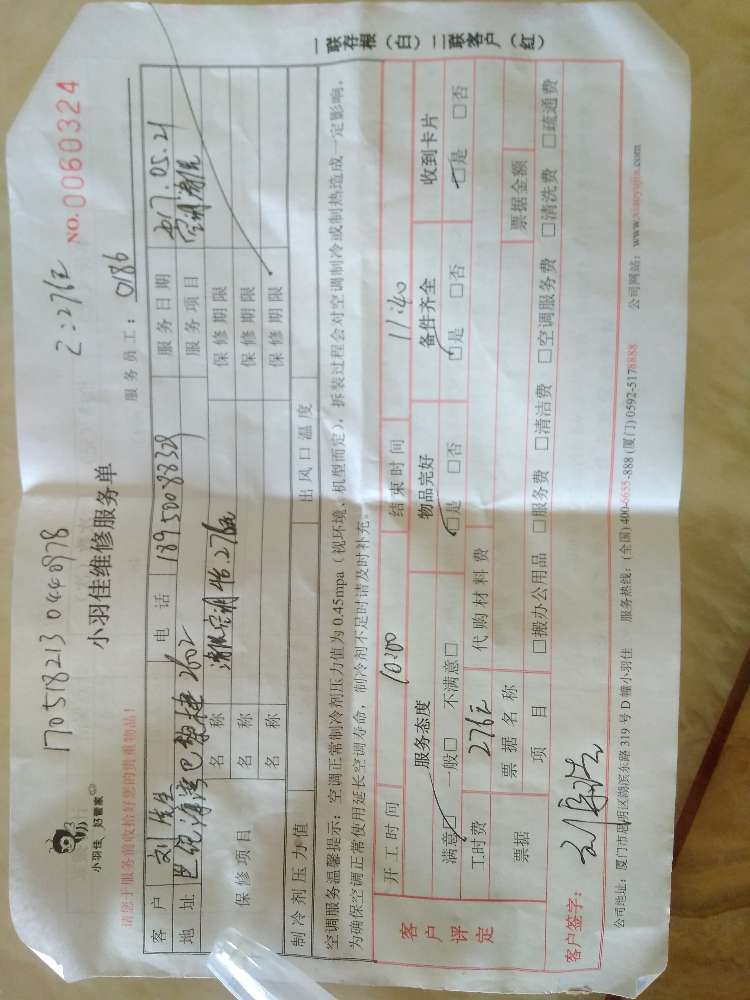 1705182130440978
2:276元
小羽佳 好管家
小羽佳维修服务单
NO.0060324
请您于服务前收拾好您的贵重物品!
服务员工: 0186
客户 刘先生 电话 18950088328 服务日期 2017.05.21
地址 世纪海湾巴黎捷2602 服务项目 空调清洗
保修项目 名称 清洗空调 276元 保修期限
名称 保修期限
名称 保修期限
制冷剂压力值 出风口温度
空调服务温馨提示:空调正常制冷剂压力值为0.45mpa(视环境、机型而定),拆装过程会对空调制冷或制热造成一定影响,
为确保空调正常使用延长空调寿命,制冷剂不足时请及时补充。
客户评定
开工时间 10:00 结束时间 11:40
服务态度 物品完好 备件齐全 收到卡片
满意□ 一般□ 不满意□ □是 □否 □是 □否 □是 □否
工时费 276元 代购材料费
票据 票据名称 票据金额
项目 □搬办公用品 □服务费 □清洁费 □空调服务费 □清洗费 □疏通费
客户签字:
公司地址:厦门市思明区湖滨东路319号D幢小羽佳 服务热线:(全国)400-6655-888 (厦门)0592-5178888 公司网站:www.xiaoyujia.com
一联存根(白)二联客户(红)